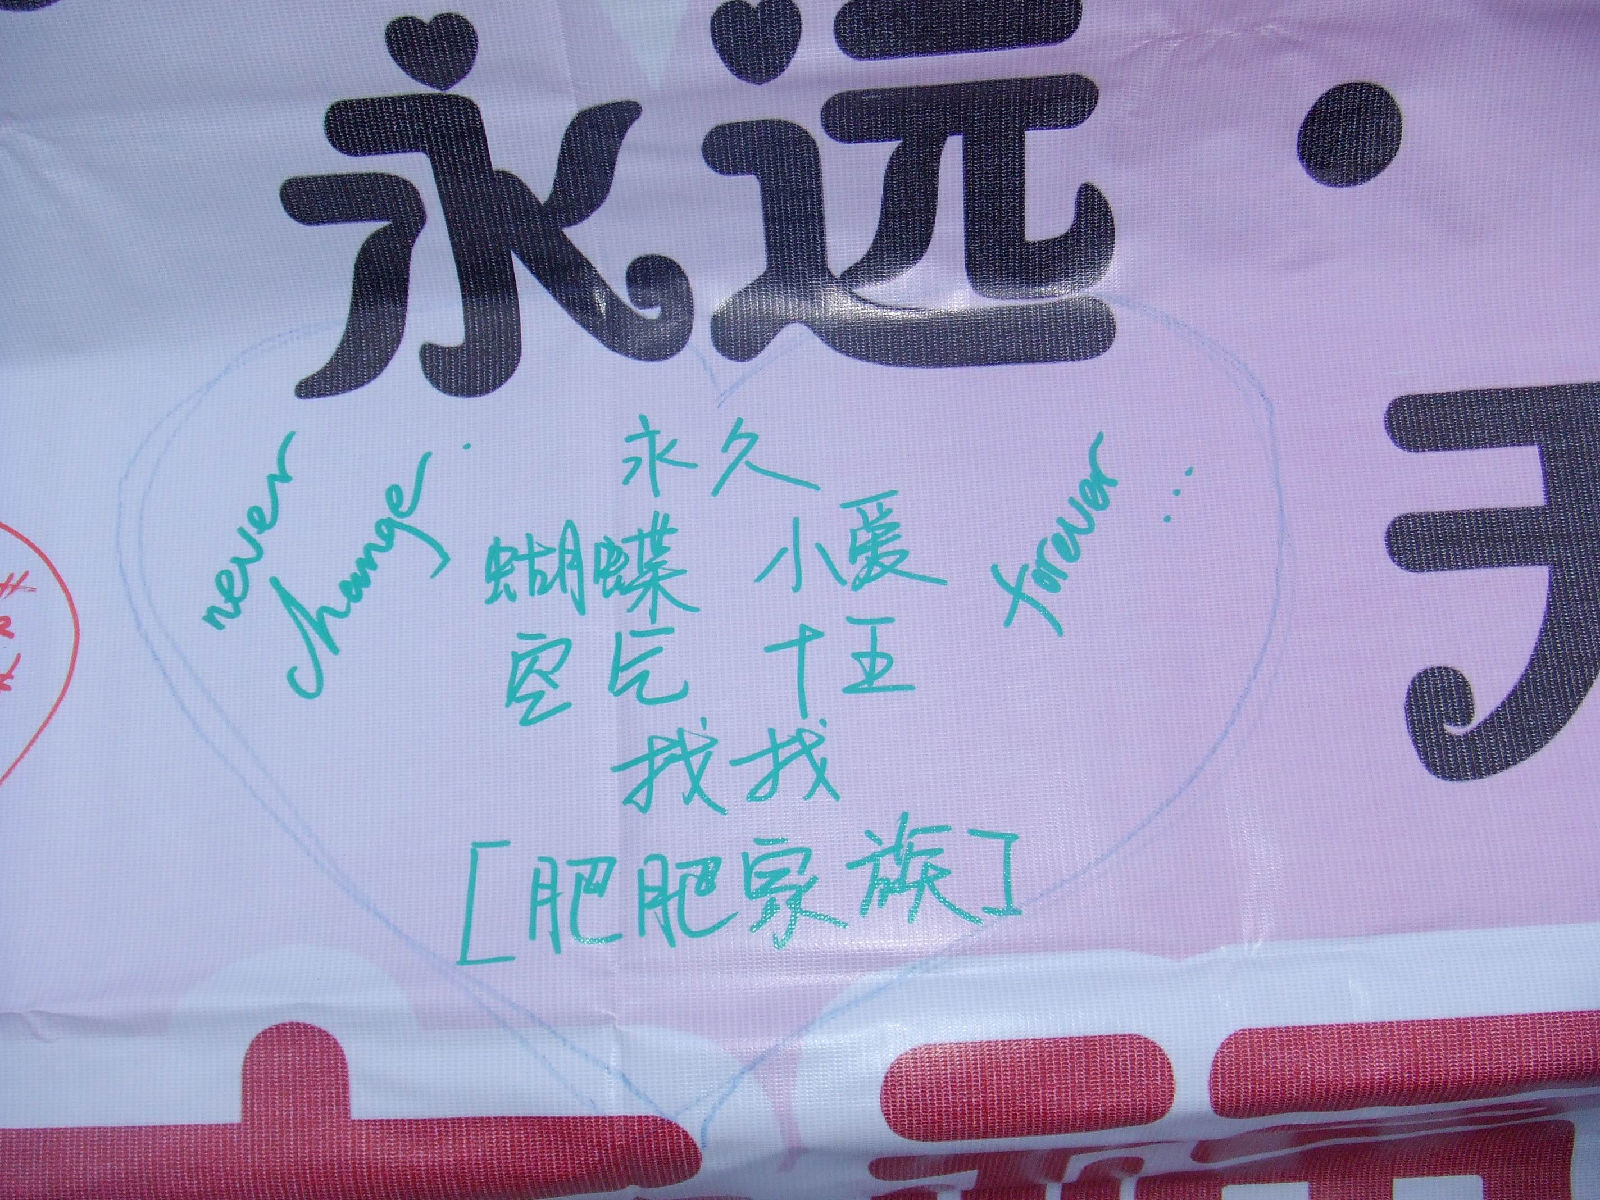 永远·
永久
never change.
forever...
蝴蝶 小爱
空气 十王
找找
[肥肥家族]